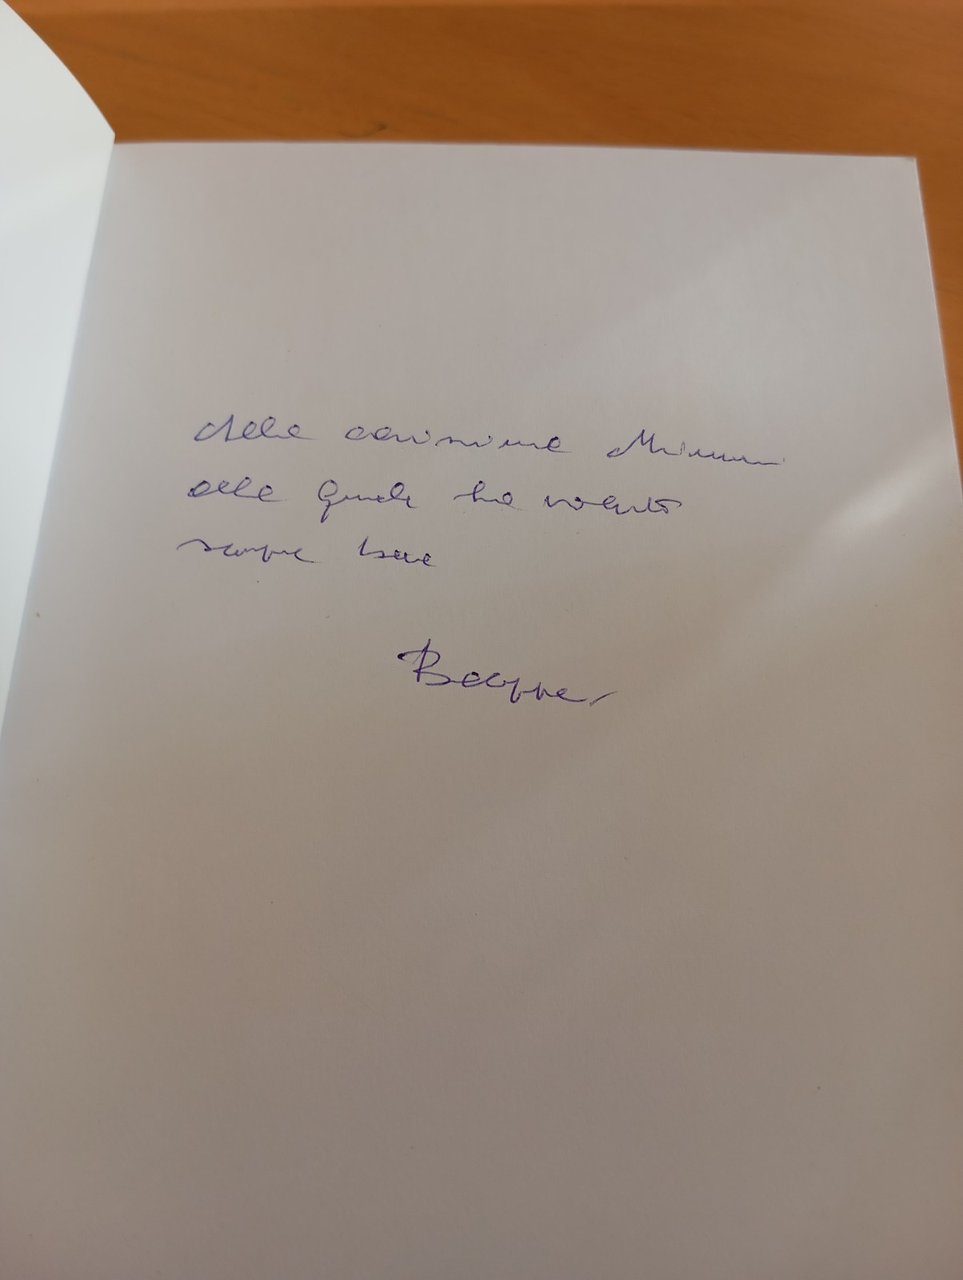 Alla carissima Mimma
alla quale ho voluto
sempre bene